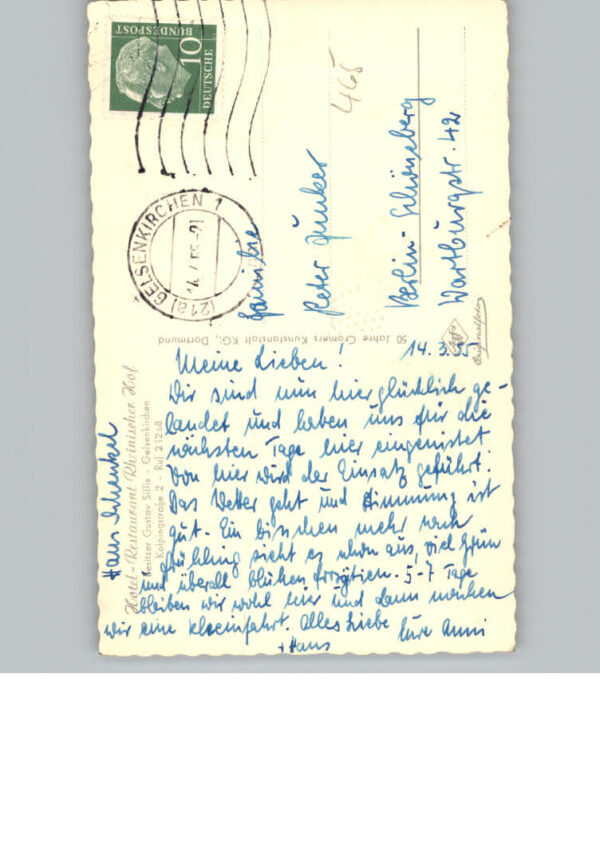 DEUTSCHE
BUNDESPOST
10
(21a) GELSENKIRCHEN 1
465
Familie
Peter Junker
Berlin-Schöneberg
Wartburgstr. 42
Originalfoto
50 Jahre Cramers Kunstanstalt KG., Dortmund
Hotel-Restaurant Rheinischer Hof
Besitzer Gustav Sillis - Gelsenkirchen
Kolpingstraße 2 - Ruf 21268
Hans Schenkel
14.3.55
Meine Lieben!
Wir sind nun hier glücklich ge-
landet und haben uns für die
nächsten Tage hier eingenistet
Von hier wird der Einsatz geführt.
Das Wetter geht und Stimmung ist
gut. Ein bischen mehr nach
Frühling sieht es schon aus, viel Grün
und überall blühen Forsytien. 5-7 Tage
bleiben wir wohl hier und dann machen
wir eine Rheinfahrt. Alles Liebe Eure Anni
+ Hans